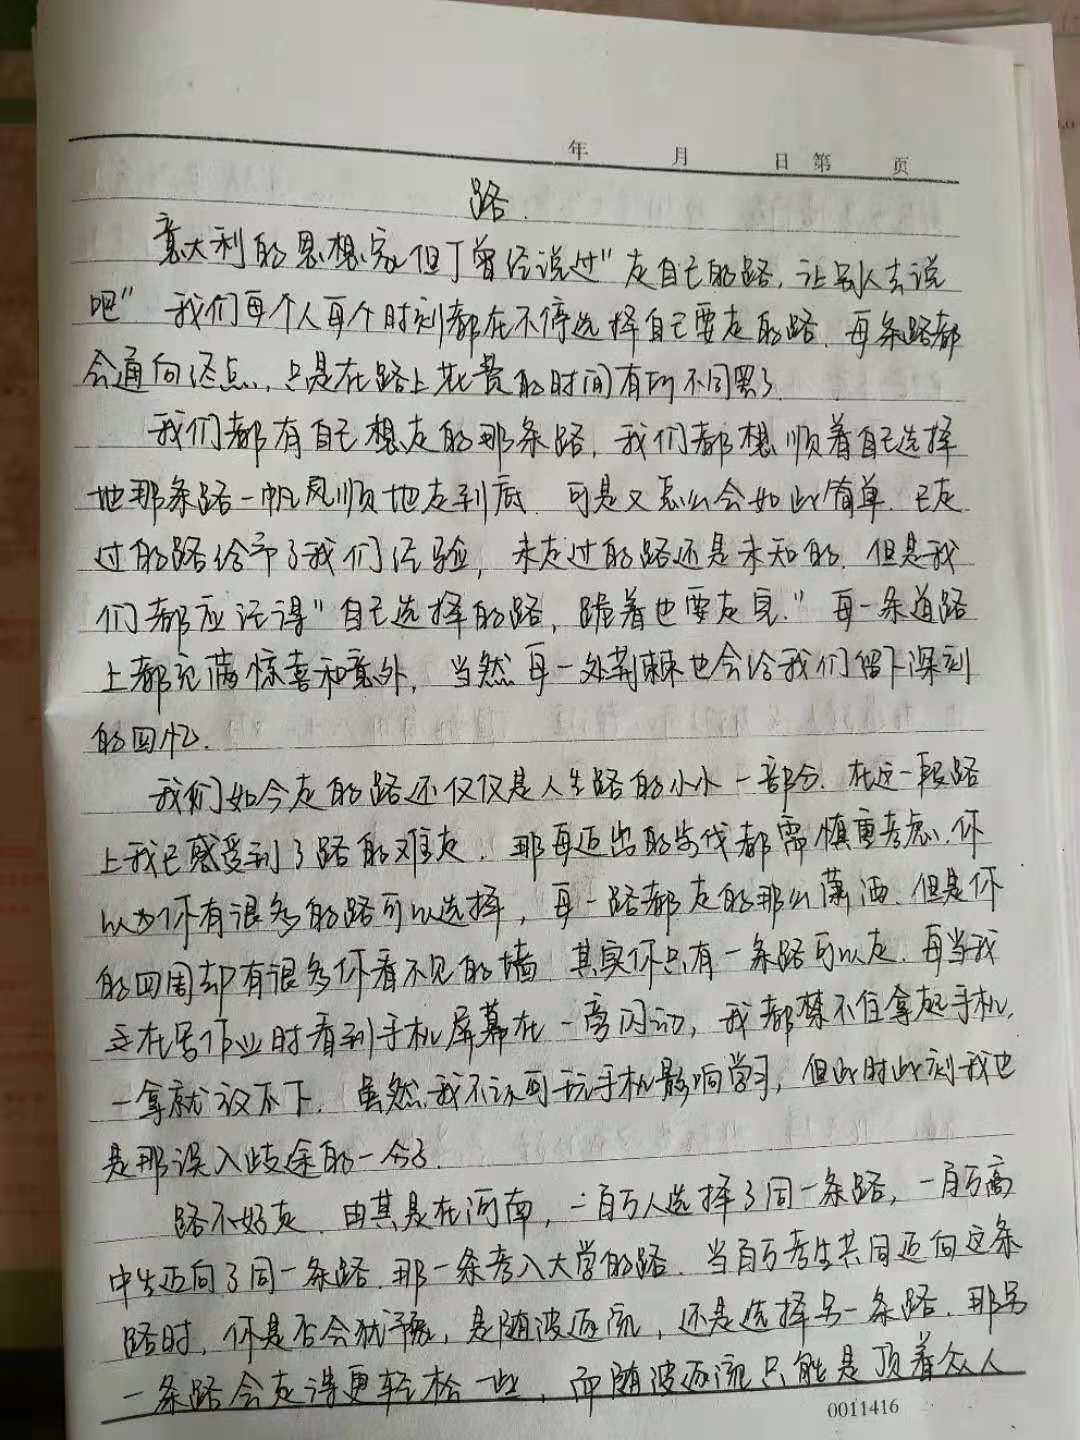 年 月 日 第 页
路.
意大利的思想家但丁曾经说过"走自己的路,让别人去说
吧" 我们每个人每个时刻都在不停选择自己要走的路.每条路都
会通向终点,只是在路上花费的时间有所不同罢了.
我们都有自己想走的那条路,我们都想顺着自己选择
地那条路一帆风顺地走到底.可是又怎么会如此简单.已走
过的路给予了我们经验,未走过的路还是未知的.但是我
们都应记得"自己选择的路,跪着也要走完."每一条道路
上都充满惊喜和意外,当然每一处荆棘也会给我们留下深刻
的回忆.
我们如今走的路还仅仅是人生路的小小一部分.在这一段路
上我已感受到了路的难走.那每迈出的步伐都需慎重考虑.你
以为你有很多的路可以选择,每一路都走的那么潇洒.但是你
的四周却有很多你看不见的墙 其实你只有一条路可以走.每当我
正在写作业时看到手机屏幕在一旁闪动,我都禁不住拿起手机,
一拿就放不下.虽然我不认可玩手机影响学习,但此时此刻我也
是那误入歧途的一个了.
路不好走.由其是在河南,一百万人选择了同一条路,一百万高
中生迈向了同一条路.那一条考入大学的路.当百万考生共同迈向这条
路时,你是否会犹豫,是随波逐流,还是选择另一条路.那另
一条路会走得更轻松一些,而随波逐流只能是顶着众人
0011416